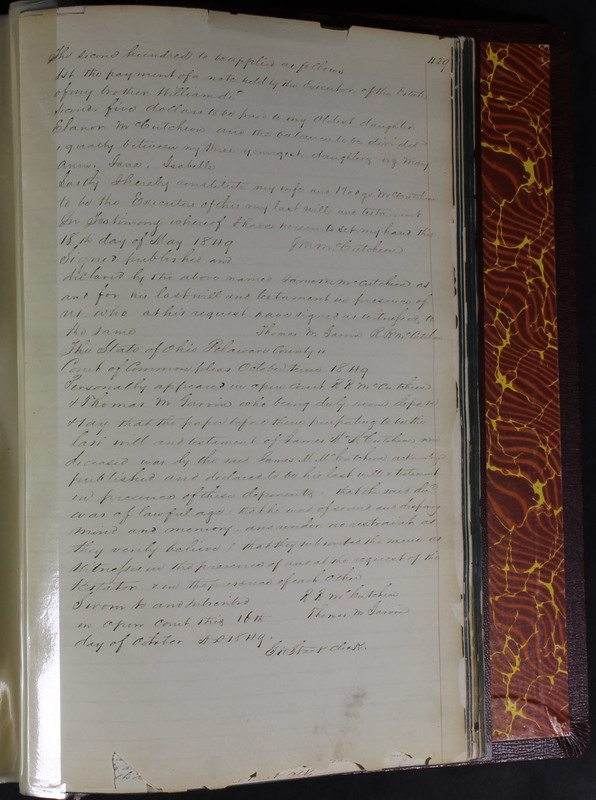 439
The second hundred to be applied as follows
1st the payment of a note held by the Executors of the Estate
of my brother William decd
second five dollars to be paid to my Oldest daughter
Elanor McCutchen and the balance to be divided
equally between my three youngest daughters viz Mary
Ann, Jane, Isabelle
Lastly I hereby constitute my wife and McCutchen
to be the Executors of this my last will and testament
In Testimony whereof I have hereunto set my hand this
18th day of May 1849 J M McCutchen
Signed published and
declared by the above name James M McCutchen as
and for his last will and testament in presence of
us who at his request have signed as witnesses to
the same Thomas M R R McCutchen
The State of Ohio Delaware County ss
Court of Common pleas October term 1849
Personally appeared in open Court R R McCutchen
& Thomas M who being duly sworn depose
& say that the paper before them purporting to be the
last will and testament of James M McCutchen
deceased was by the said James M McCutchen
published and declared to be his last will & testament
in presence of these deponents, that the said decd
was of lawful age, that he was of sound and disposing
mind and memory, and under no restraint as
they verily believe, that they subscribed the same as
Witnesses in the presence of and at the request of the
testator & in the presence of each other
Sworn to and subscribed R R McCutchen
in open Court this 16th Thomas M
day of October A D 1849.
Clerk